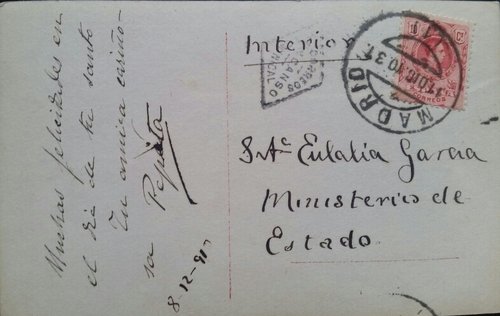 Muchas felicidades en
el dia de tu santo
Tu amiga cariño-
sa Pepita
8-12-917
Interior
CORREOS
MADRID
CORREOS
Srta Eulalia Garcia
Ministerio de
Estado.